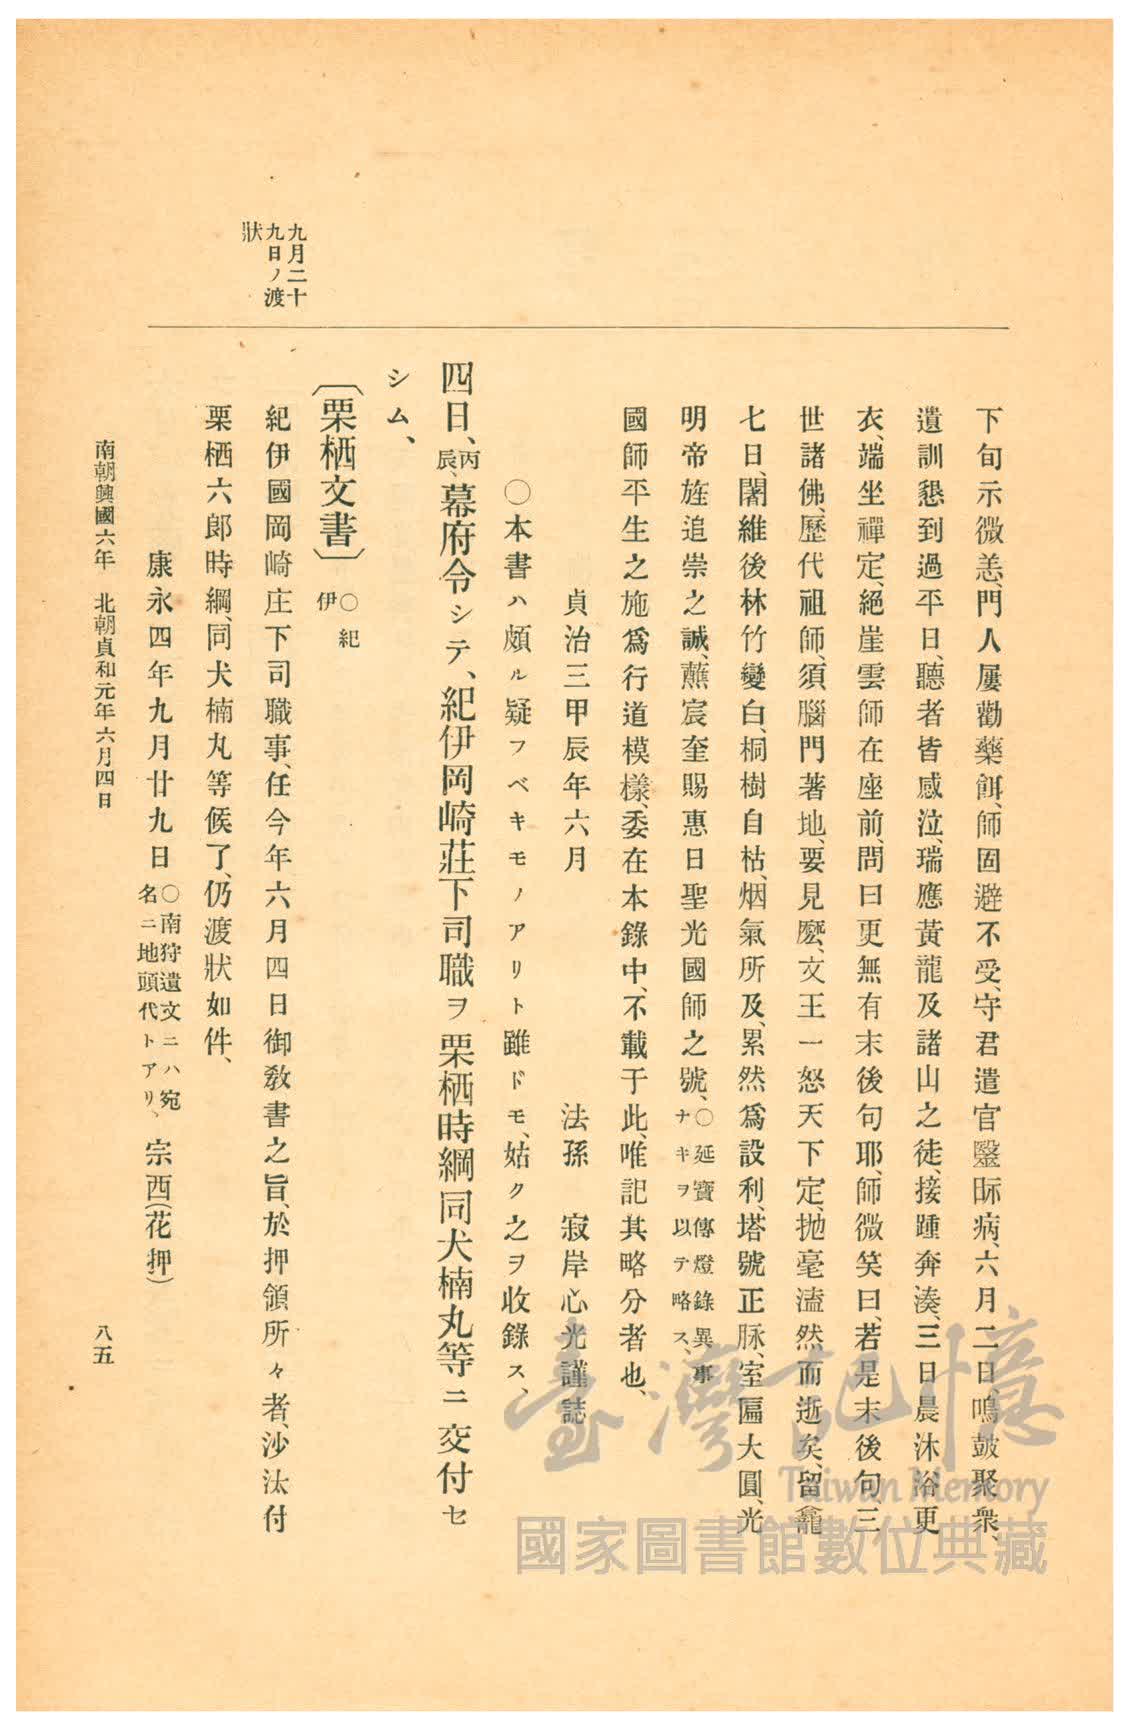 九月二十
九日ノ渡
狀
下旬示微恙、門人屢勸藥餌、師固避不受、守君遣官毉眎病、六月二日、鳴鼓聚衆、
遺訓懇到過平日、聽者皆感泣、瑞應黃龍及諸山之徒、接踵奔湊、三日晨沐浴更
衣、端坐禪定、絕崖雲師在座前、問曰更無有末後句耶、師微笑曰、若是末後句、三
世諸佛、歷代祖師、須腦門著地、要見麽、文王一怒天下定、抛毫溘然而逝矣、留龕
七日、闍維後林竹變白、桐樹自枯、烟氣所及、累然爲設利、塔號正脉、室匾大圓、光
明帝旌追崇之誠、蘸宸奎賜惠日聖光國師之號、○延寶傳燈錄異事ナキヲ以テ略ス、
國師平生之施爲行道模樣、委在本錄中、不載于此、唯記其略分者也、
貞治三甲辰年六月　法孫　寂岸心光謹誌
○本書ハ頗ル疑フベキモノアリト雖ドモ、姑ク之ヲ收錄ス、
四日、丙辰、幕府令シテ、紀伊岡崎莊下司職ヲ栗栖時綱同犬楠丸等ニ交付セ
シム、
〔栗栖文書〕○紀伊
紀伊國岡崎庄下司職事、任今年六月四日御敎書之旨、於押領所々者、沙汰付
栗栖六郎時綱、同犬楠丸等候了、仍渡狀如件、
康永四年九月廿九日○南狩遺文ニハ宛名ニ地頭代トアリ、宗西(花押)
南朝興國六年　北朝貞和元年六月四日　八五
臺灣記憶
Taiwan Memory
國家圖書館數位典藏